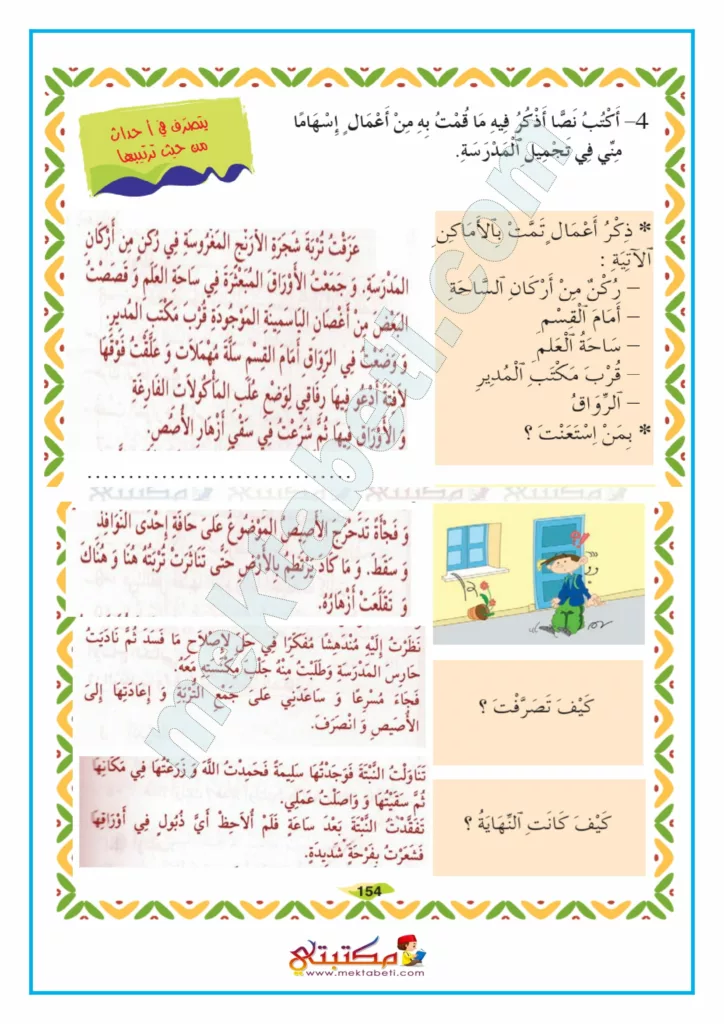 4– أَكْتُبُ نَصًّا أَذْكُرُ فِيهِ مَا قُمْتُ بِهِ مِنْ أَعْمَالٍ إِسْهَامًا
مِنِّي فِي تَجْمِيلِ ٱلْمَدْرَسَةِ.
يتصرّف في أحداث
من حيث ترتيبها
* ذِكْرُ أَعْمَالٍ تَمَّتْ بِٱلْأَمَاكِنِ
ٱلْآتِيَةِ :
– رُكْنٌ مِنْ أَرْكَانِ ٱلسَّاحَةِ
– أَمَامَ ٱلْقِسْمِ
– سَاحَةُ ٱلْعَلَمِ
– قُرْبَ مَكْتَبِ ٱلْمُدِيرِ
– ٱلرِّوَاقُ
* بِمَنْ اِسْتَعَنْتَ ؟
عَزَقْتُ تُرْبَةَ شَجَرَةِ الأَرَنْجِ المَغْرُوسَةِ فِي رُكْنٍ مِنْ أَرْكَانِ
المَدْرَسَةِ. وَ جَمَعْتُ الأَوْرَاقَ المُبَعْثَرَةَ فِي سَاحَةِ العَلَمِ وَ قَصَصْتُ
البَعْضَ مِنْ أَغْصَانِ اليَاسَمِينَةِ المَوْجُودَةِ قُرْبَ مَكْتَبِ المُدِيرِ.
وَ وَضَعْتُ فِي الرِّوَاقِ أَمَامَ القِسْمِ سَلَّةَ مُهْمَلَاتٍ وَ عَلَّقْتُ فَوْقَهَا
لَافِتَةً أَدْعُو فِيهَا رِفَاقِي لِوَضْعِ عُلَبِ المَأْكُولَاتِ الفَارِغَةِ
وَ الأَوْرَاقِ فِيهَا ثُمَّ شَرَعْتُ فِي سَقْيِ أَزْهَارِ الأُصُصِ.
................................
وَ فَجْأَةً تَدَحْرَجَ الأَصِيصُ المَوْضُوعُ عَلَى حَافَةِ إِحْدَى النَّوَافِذِ
وَ سَقَطَ. وَ مَا كَادَ يَرْتَطِمُ بِالأَرْضِ حَتَّى تَنَاثَرَتْ تُرْبَتُهُ هُنَا وَ هُنَاكَ
وَ تَقَلَّعَتْ أَزْهَارُهُ.
نَظَرْتُ إِلَيْهِ مُنْدَهِشًا مُفَكِّرًا فِي حَلٍّ لِإِصْلَاحِ مَا فَسَدَ ثُمَّ نَادَيْتُ
حَارِسَ المَدْرَسَةِ وَ طَلَبْتُ مِنْهُ جَلْبَ مِكْنَسَتِهِ مَعَهُ.
فَجَاءَ مُسْرِعًا وَ سَاعَدَنِي عَلَى جَمْعِ التُّرْبَةِ وَ إِعَادَتِهَا إِلَى
الأَصِيصِ وَ انْصَرَفَ.
كَيْفَ تَصَرَّفْتَ ؟
تَنَاوَلْتُ النَّبْتَةَ فَوَجَدْتُهَا سَلِيمَةً فَحَمِدْتُ اللَّهَ وَ زَرَعْتُهَا فِي مَكَانِهَا
ثُمَّ سَقَيْتُهَا وَ وَاصَلْتُ عَمَلِي.
تَفَقَّدْتُ النَّبْتَةَ بَعْدَ سَاعَةٍ فَلَمْ أُلَاحِظْ أَيَّ ذُبُولٍ فِي أَوْرَاقِهَا
فَشَعَرْتُ بِفَرْحَةٍ شَدِيدَةٍ.
كَيْفَ كَانَتِ ٱلنِّهَايَةُ ؟
154
مكتبتي
www.mektabeti.com
mektabeti.com